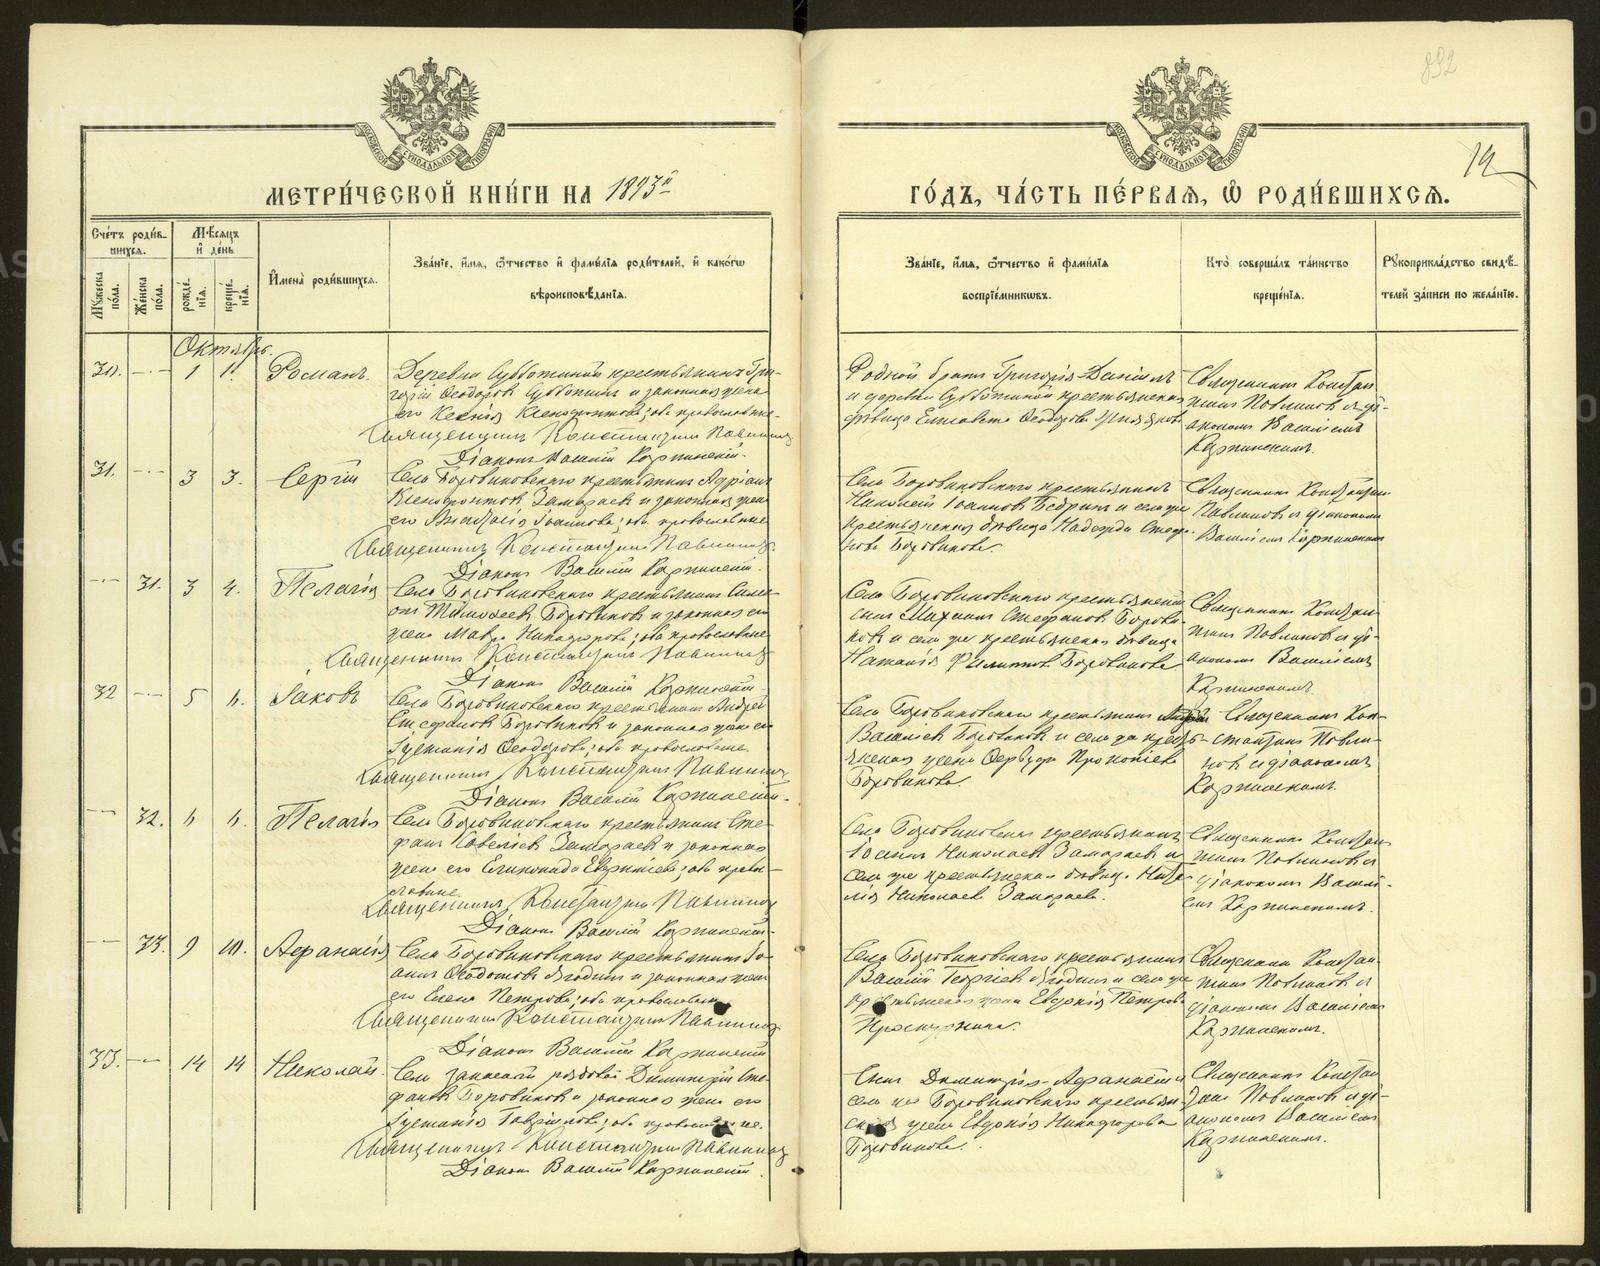 892
12
МЕТРИ́ЧЕСКОЙ КНИ́ГИ НА 1893й
ГО́ДЪ, ЧА́СТЬ ПЕ́РВАѦ, Ѡ҆ РОДИ́ВШИХСѦ.
Сче́тъ роди́в-
шихсѧ.
Мѣ́сѧцъ
и҆ де́нь
Мꙋ́жеска по́ла.
Же́нска по́ла.
рожде́-
нїѧ.
креще́-
нїѧ.
И҆мена̀ роди́вшихсѧ.
Зва́нїе, и҆́мѧ, ѻ҆́тчество и҆ фами́лїѧ роди́телей, и҆ како́гѡ
вѣроисповѣ́данїѧ.
Зва́нїе, и҆́мѧ, ѻ҆́тчество и҆ фами́лїѧ
воспрїе́мникѡвъ.
Кто̀ соверша́лъ та́инство
креще́нїѧ.
Рꙋкоприкла́дство свидѣ́-
телей за́писи по жела́нїю.
Октябрь.
30. — 1 1. Романъ.
Деревни Субботиной крестьянинъ Гри-
горій Ѳеодоровъ Субботинъ и законная жена
его Ксенія Ксенофонтова; оба православные
Священникъ Константинъ Павлиновъ
Діаконъ Василій Карпинскій.
Родной братъ Григорія Даніилъ
и деревни Субботиной крестьянская
дѣвица Елисавета Ѳеодорова
Священникъ Констан-
тинъ Павлиновъ съ ді-
акономъ Василіемъ
Карпинскимъ.
31. — 3 3. Сергій
Села Боровиковскаго крестьянинъ Адріанъ
Ксенофонтовъ Замараевъ и законная жена
его Анастасія Іоаннова; оба православные
Священникъ Константинъ Павлиновъ
Діаконъ Василій Карпинскій.
Села Боровиковскаго крестьянинъ
Николай Іоанновъ и села же
крестьянская дѣвица Надежда
Боровикова.
Священникъ Константинъ
Павлиновъ съ діакономъ
Василіемъ Карпинскимъ
— 31. 3 4. Пелагія
Села Боровиковскаго крестьянинъ Симе-
онъ Тимоѳеевъ Боровиковъ и законная его
жена Мавра Никифорова; оба православные
Священникъ Константинъ Павлиновъ
Діаконъ Василій Карпинскій.
Села Боровиковскаго крестьянскій
сынъ Михаилъ Стефановъ Борови-
ковъ и села же крестьянская дѣвица
Наталія Филиппова Боровикова
Священникъ Констан-
тинъ Павлиновъ съ ді-
акономъ Василіемъ
Карпинскимъ.
32 — 5 6. Іаковъ
Села Боровиковскаго крестьянинъ Андрей
Стефановъ Боровиковъ и законная жена его
Іустинія Ѳеодорова; оба православные
Священникъ Константинъ Павлиновъ
Діаконъ Василій Карпинскій.
Села Боровиковскаго крестьянинъ
Василіевъ Боровиковъ и села же кресть-
янская жена Прокопіева
Боровикова.
Священникъ Кон-
стантинъ Павли-
новъ съ діакономъ
Карпинскимъ.
— 32. 6 6. Пелагія
Села Боровиковскаго крестьянинъ Сте-
фанъ Замараевъ и законная
жена его Евфиміева; оба право-
славные
Священникъ Константинъ Павлиновъ
Діаконъ Василій Карпинскій.
Села Боровиковскаго крестьянинъ
Іоаннъ Николаевъ Замараевъ и
села же крестьянская дѣвица Ната-
лія Николаева Замараева.
Священникъ Констан-
тинъ Павлиновъ съ
діакономъ Васи-
емъ Карпинскимъ.
— 33. 9 10. Аѳанасія
Села Боровиковскаго крестьянинъ Іо-
аннъ и законная жена
его Елена Петрова; оба православные
Священникъ Константинъ Павлиновъ
Діаконъ Василій Карпинскій
Села Боровиковскаго крестьянинъ
Василій Георгіевъ и села же
крестьянская жена Евдокія Петрова
Священникъ Констан-
тинъ Павлиновъ съ
діакономъ Василіемъ
Карпинскимъ.
33. — 14 14 Николай.
Села запасный рядовой Димитрій Сте-
фановъ Боровиковъ и законная жена его
Іустинія Гавріилова; оба православные.
Священникъ Константинъ Павлиновъ
Діаконъ Василій Карпинскій.
Сынъ Димитрія Аѳанасій и
села же Боровиковскаго крестьян-
ская жена Евдокія Никифорова
Боровикова.
Священникъ Констан-
тинъ Павлиновъ съ ді-
акономъ Василіемъ
Карпинскимъ.